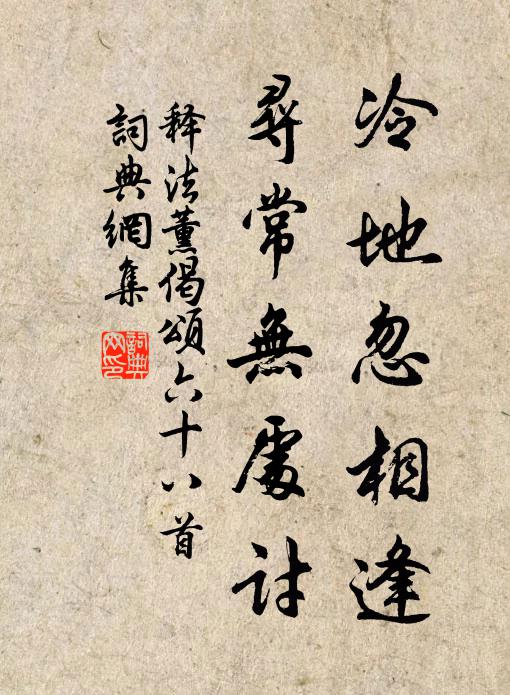 冷地忽相逢
尋常無處討
释法薰偈頌六十八首
詞典網集
詞典
网印